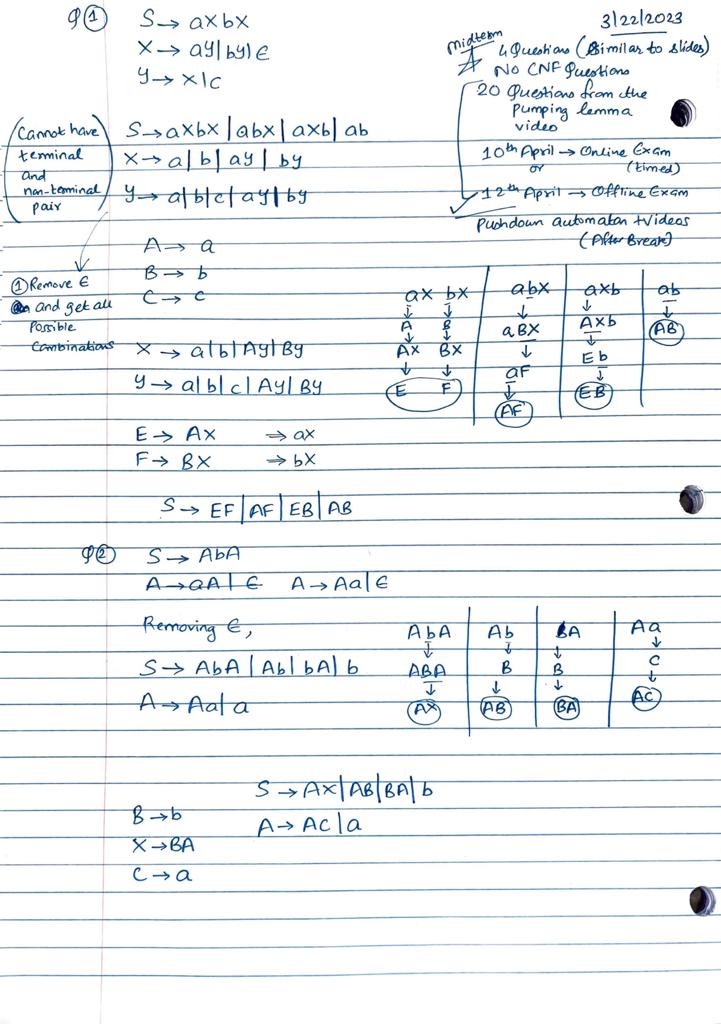 Q① S → aXbX
X → aY|bY|ϵ
Y → X|c
3/22/2023
Midterm
4 Questions (Similar to slides)
No CNF Questions
20 Questions from the
pumping lemma
video
10th April → Online Exam
or (timed)
12th April → Offline Exam
Pushdown automaton + Videos
(After Break)
(Cannot have
terminal
and
non-terminal
pair)
S → aXbX | abX | aXb | ab
X → a | b | aY | bY
Y → a | b | c | aY | bY
① Remove ϵ
and get all
Possible
Combinations
A → a
B → b
C → c
X → a|b|AY|BY
Y → a|b|c|AY|BY
aX bX | abX | aXb | ab
↓ ↓ | ↓ | ↓ | ↓
A B | aBX | AXb | AB
↓ ↓ | ↓ | ↓
AX BX | aF | Eb
↓ ↓ | ↓ | ↓
E F | AF | EB
E → AX ⇒ aX
F → BX ⇒ bX
S → EF|AF|EB|AB
Q② S → AbA
A → aA|ϵ A → Aa|ϵ
Removing ϵ,
S → AbA | Ab | bA | b
A → Aa | a
AbA | Ab | bA | Aa
↓ | ↓ | ↓ | ↓
ABA | B | B | C
↓ | ↓ | ↓ | ↓
AX | AB | BA | AC
S → AX|AB|BA|b
B → b
A → AC|a
X → BA
C → a